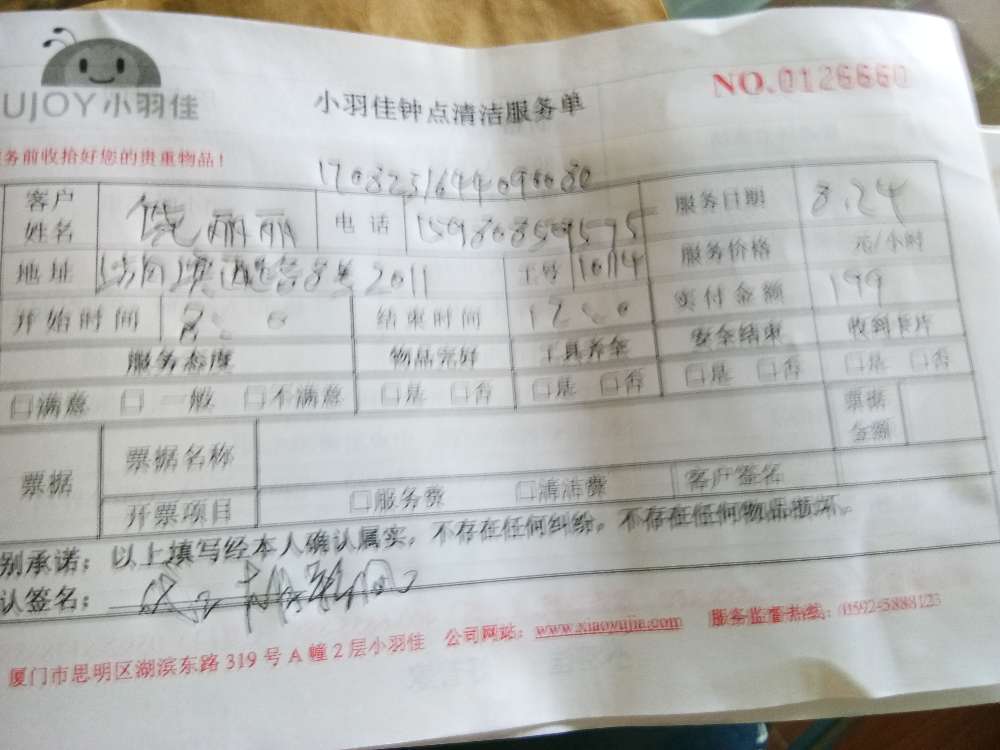 UJOY小羽佳
小羽佳钟点清洁服务单
NO.0126660
务前收拾好您的贵重物品！
客户姓名 饶丽丽 电话 服务日期 8.24
地址 2011 工号 服务价格 元/小时
实付金额 199
开始时间 结束时间
服务态度 物品完好 工具齐全 安全结束 收到卡片
□满意 □一般 □不满意 □是 □否 □是 □否 □是 □否 □是 □否
票据 票据名称 票据金额
开票项目 □服务费 □清洁费 客户签名
别承诺：以上填写经本人确认属实，不存在任何纠纷，不存在任何物品损坏。
认签名：
厦门市思明区湖滨东路319号A幢2层小羽佳 公司网站：www.xiaoyujia.com 服务监督热线：0592-5888123